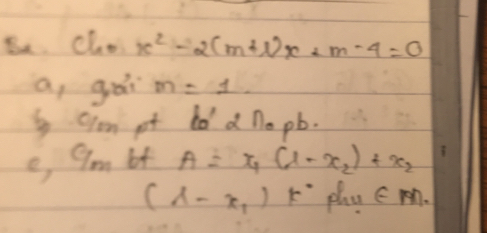 Cho x² - 2(m+1)x + m - 4 = 0
a, giải m = 1.
b, C/m pt có 2 n₀ pb.
c, C/m bt A = x₁ (1 - x₂) + x₂
(1 - x₁) k° phụ ∈ m.